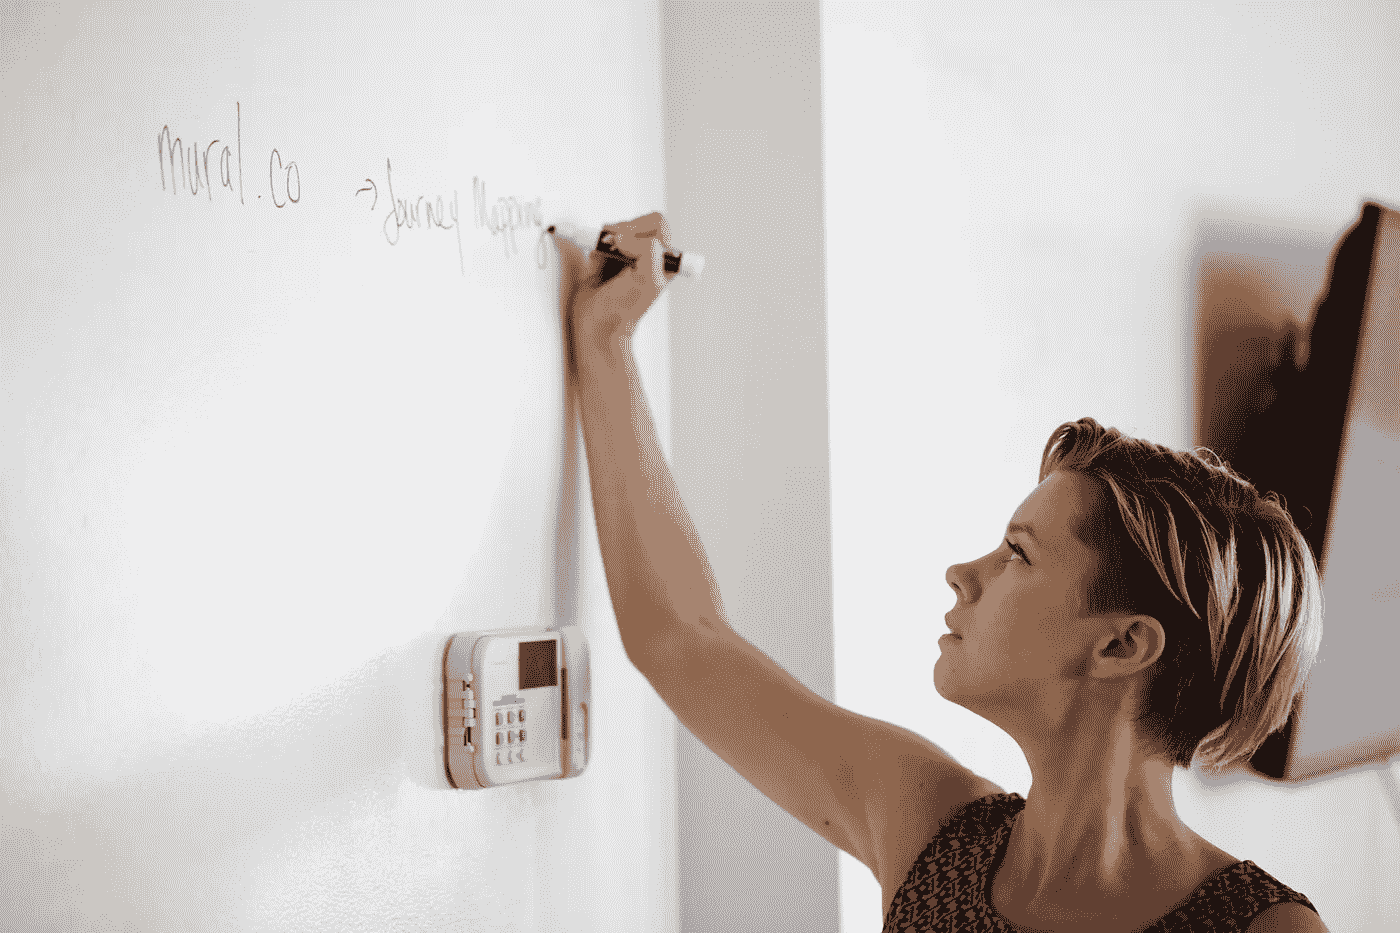 mural.co → Journey Mapping